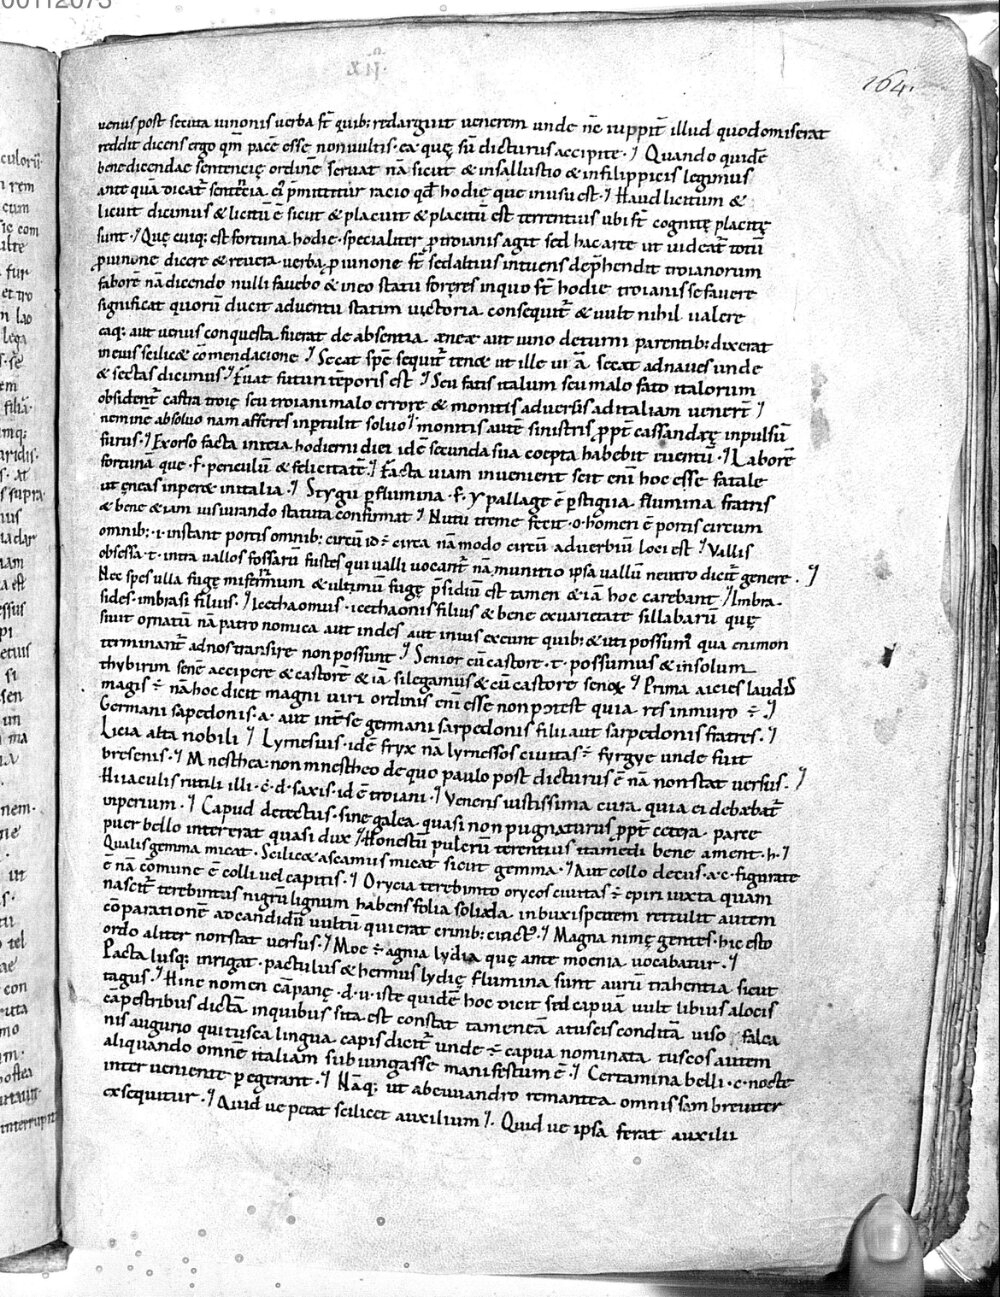 00112073
164.
venus post secuta iunonis uerba st̄ quib; redarguit uenerem unde nē iuppit̄ illud quod omiserat
reddit dicens ergo qm̄ pacē esse non uultis ex quę sū dicturus accipite. Quando quidē
bene dicendae sententię ordinē seruat nā sicut & in sallustio & in filippicis legimus
ante quā dicat̄ sententia ei p̄mittitur racio qđ hodie que in usu est. Haud licitum &
licuit dicimus & licitū ē sicut & placuit & placitū est terrentius ubi st̄ cognitę placitę
sunt. Que cuiq; est fortuna hodie. specialiter p troianis agit sed hac arte ut uideat̄ totū
p iunone dicere & reuera uerba p iunone st̄ sed altius intuens dep̄hendit troianorum
faborē nā dicendo nulli fauebo & in eo statu fore res in quo st̄ hodie troianis se fauere
significat quorū ducit aduentu statim uictoria consequit̄ & uult nihil ualere
eaq; aut uenus conquesta fuerat de absentia ęneae aut iuno de turni parentib; dixerat
in eius scilicet cōmendacione Secat spē sequit̄ tenet ut ille uiā secat ad naues unde
& sectas dicimus Erat futuri tēporis est Seu fatis italum seu malo fato italorum
obsident̄ castra troię seu troiani malo errore & monitis aduersis ad italiam uenerт̄
neminē absoluo nam afferes inp̄tulit soluo monitis autē sinistris p̄pt̄ cassandrę inpulsū
furus. Exorso facta inicia hodierni diei idē secunda sua coepta habebit euentū. Laborē
fortunā que .f. periculū & felicitatē. Facta uiam inuenient scit eni hoc esse fatale
ut ęneas inperet in italia. Stygii p flumina .f. ypallage ē p stigia flumina fratris
& bene etiam iusiurando statuta confirmat Nutu treme fecit .o. homeri ē portis circum
omnib; .i. instant portis omnib; circū id ÷ circa nā modo circū aduerbiū loci est Vallis
obsessa .t. intra uallos fossarū fustes qui ualli uocant̄ nā munitio ipsa uallū neutro dicit̄ genere.
Nec spes ulla fugę miserrimum & ultimū fugę p̄sidiū est tamen & iā hoc carebant Imbra.
sides. imbrasi filius. Icethaomus. icethaonis filius & bene ex uarietate sillabarū quę
siuit ornatū nā patronomica aut in des aut in ius exeunt quib; & uti possum̄ qua eni in on
terminant̄ ad nos transire non possunt Senior cū castore .t. possumus & in solum
thybrim senē accipere & castorē & iā si legamus & cū castore senex Prima acies laudis
magis ÷ nā hoc dicit magni uiri ordinis eni esse non potest quia res in muro ÷.
Germani sapedonis .a. aut int̄ se germani sarpedonis filii aut sarpedonis fratres.
Licia alta nobili Lyrnesius. idē fryx nā lyrnessos ciuitas ÷ fyrgye unde fuit
bresenis. Mnesthea: non mnestheo de quo paulo post dicturus ē nā non stat uersus.
Hi iaculis rutili illi .c.d. saxis. id ē troiani. Veneris iustissima cura quia ei debebat̄
inperium. Capud detectus. sine galea quasi non pugnaturus p̄pt̄ cetera paret
puer bello intererat quasi dux Honestū pulcrū terentius ita me di bene ament .h.
Qualis gemma micat. Scilicet ascanius micat sicut gemma. Aut collo decus .a.c. figurate
ē nā comune ē colli uel capitis. Orycia terebinto orycos ciuitas ÷ epiri iuxta quam
nascit̄ terebintus nigrū lignum habens folia solida in buxi spetem rettulit autem
cōparationē ad candidū uultū qui erat crinib; cinct9. Magna nimę gentes. hic esto
ordo aliter non stat uersus. Moe ÷ agnia lydia quę ante moenia uocabatur.
Pacta lusq; inrigat. pactulus & hermus lydię flumina sunt aurū trahentia sicut
tagus. Hinc nomen cāpanę .d.u. iste quidē hoc dicit sed capuā uult libius a locis
cāpestribus dictā in quibus sita est constat tamen eā a tuscis conditā uiso falco
nis augurio qui tusca lingua capis dicit̄ unde ÷ capua nominata tuscos autem
aliquando omnē italiam subiungasse manifestum ē. Certamina belli .c. nocte
interueniente pegerant. Nāq; ut ab euuandro remantea omnis sam breuiter
exsequitur. Quid ue petat scilicet auxilium. Quid ue ipsa ferat auxilii